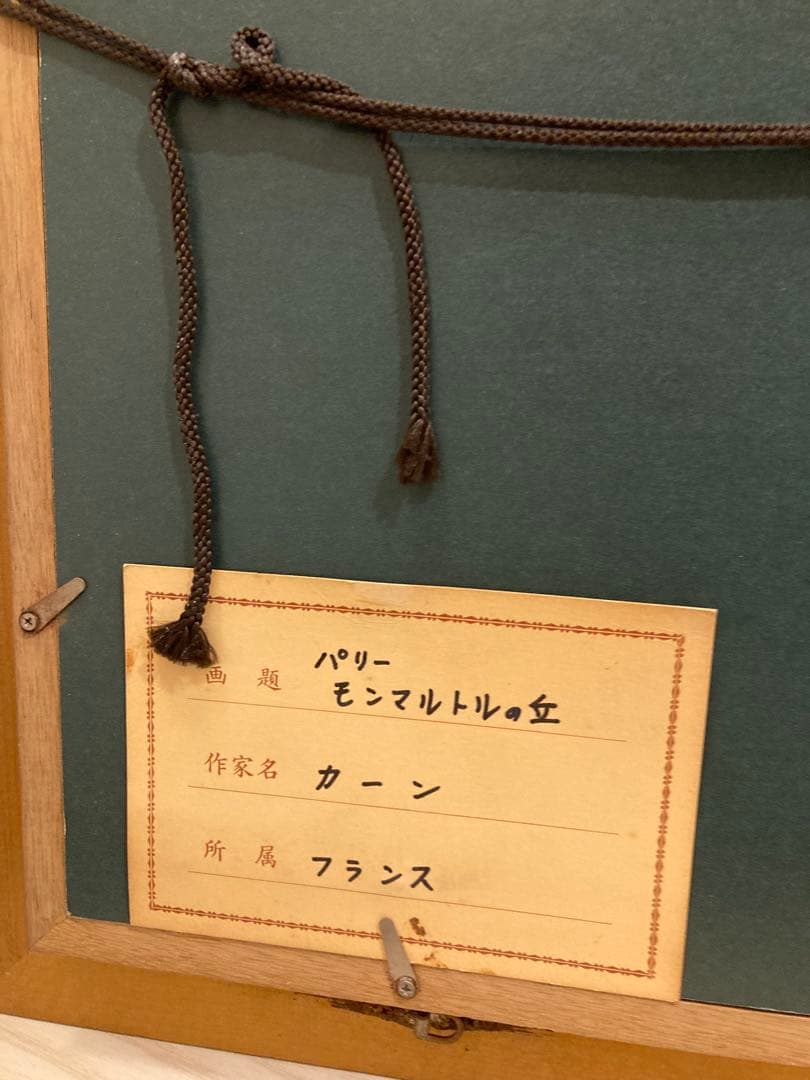 パリー
画題 モンマルトルの丘
作家名 カーン
所属 フランス